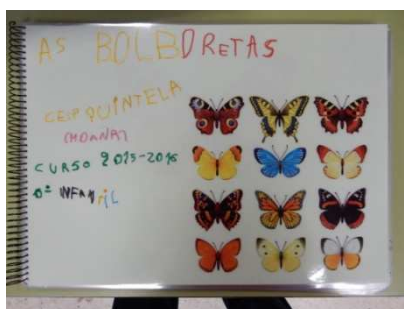 AS BOLBORETAS
CEIP QUINTELA
(MOAÑA)
CURSO 2015-2016
INFANTIL